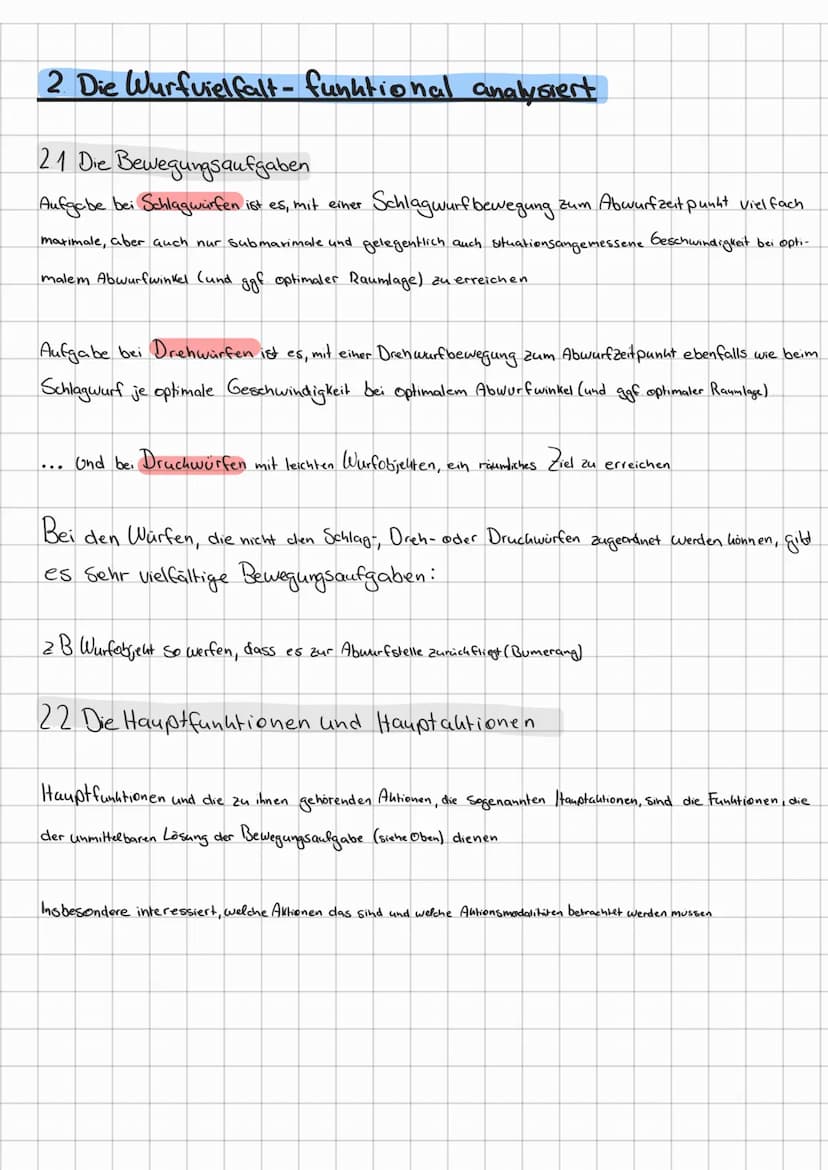 2 Die Wurfvielfalt - funktional analysiert
2 1 Die Bewegungsaufgaben
Aufgabe bei Schlagwürfen ist es, mit einer Schlagwurfbewegung zum Abwurfzeitpunkt vielfach
maximale, aber auch nur submaximale und gelegentlich auch situationsangemessene Geschwindigkeit bei opti-
malem Abwurfwinkel (und ggf optimaler Raumlage) zu erreichen
Aufgabe bei Drehwürfen ist es, mit einer Drehwurfbewegung zum Abwurfzeitpunkt ebenfalls wie beim
Schlagwurf je optimale Geschwindigkeit bei optimalem Abwurfwinkel (und ggf optimaler Raumlage)
... Und bei Druckwürfen mit leichten Wurfobjekten, ein räumliches Ziel zu erreichen
Bei den Würfen, die nicht den Schlag-, Dreh- oder Druckwürfen zugeordnet werden können, gibt
es sehr vielfältige Bewegungsaufgaben:
z B Wurfobjekt so werfen, dass es zur Abwurfstelle zurückfliegt (Bumerang)
2 2 Die Hauptfunktionen und Hauptaktionen
Hauptfunktionen und die zu ihnen gehörenden Aktionen, die sogenannten Hauptaktionen, sind die Funktionen, die
der unmittelbaren Lösung der Bewegungsaufgabe (siehe Oben) dienen
Insbesondere interessiert, welche Aktionen das sind und welche Aktionsmodalitäten betrachtet werden mussen